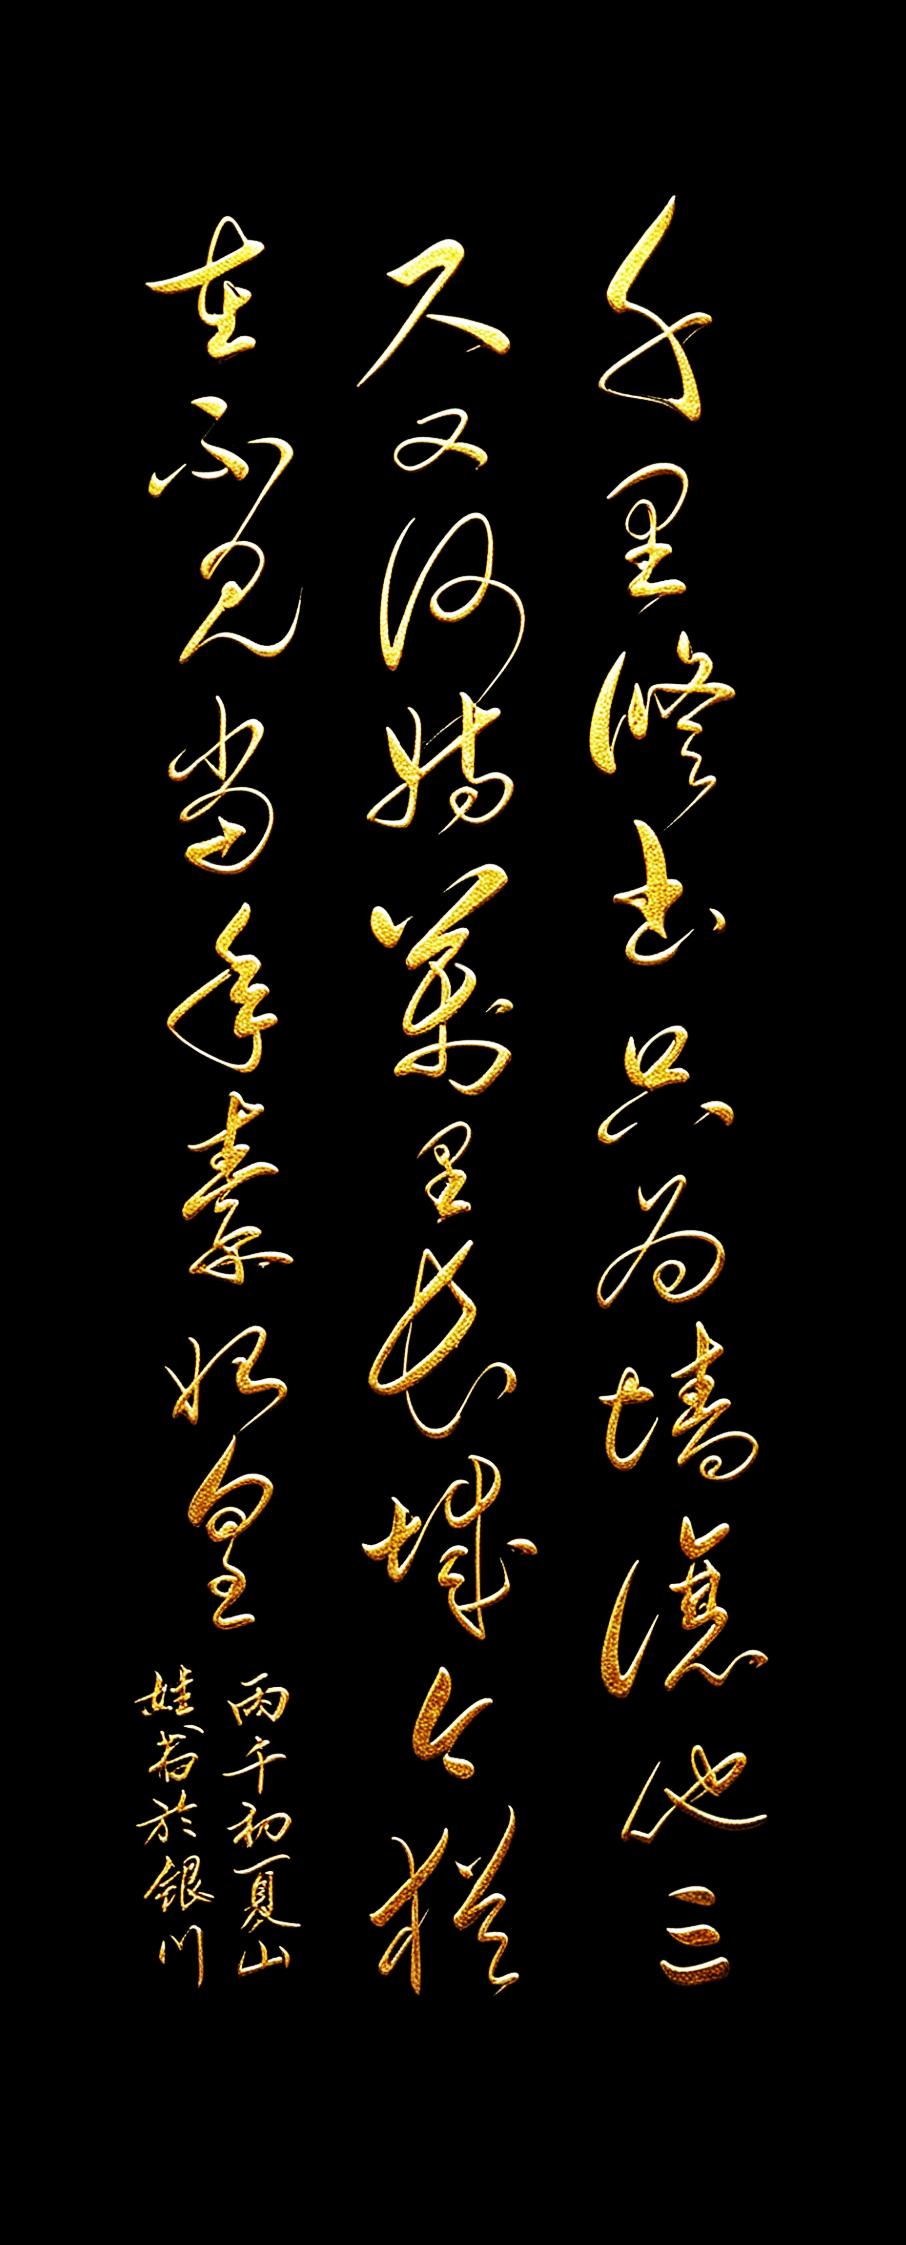 千里修书只为墙让他三
尺又何妨万里长城今犹
在不见当年秦始皇
丙午初夏山
娃书於银川